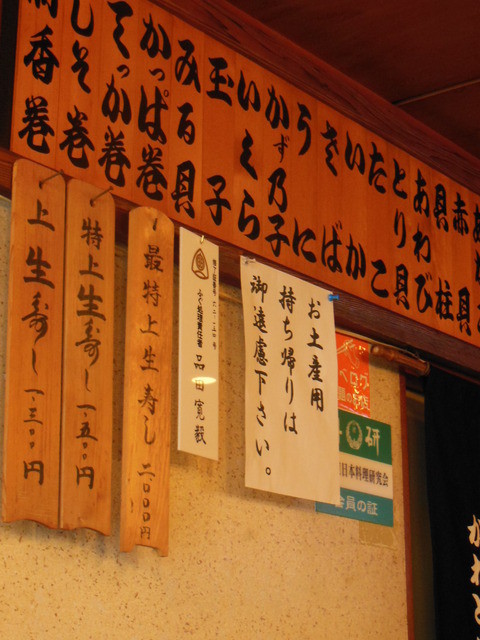 赤貝
貝柱
あわび
とり貝
たこ
いか
さば
うに
かずの子
いくら
玉子
みる貝
かっぱ巻
てっか巻
しそ巻
香巻
お土産用
持ち帰りは
御遠慮下さい。
ふぐ処理責任者
最特上生寿し 二、〇〇〇円
特上生寿し 一、五〇〇円
上生寿し 一、三〇〇円
研
日本料理研究会
会員の証